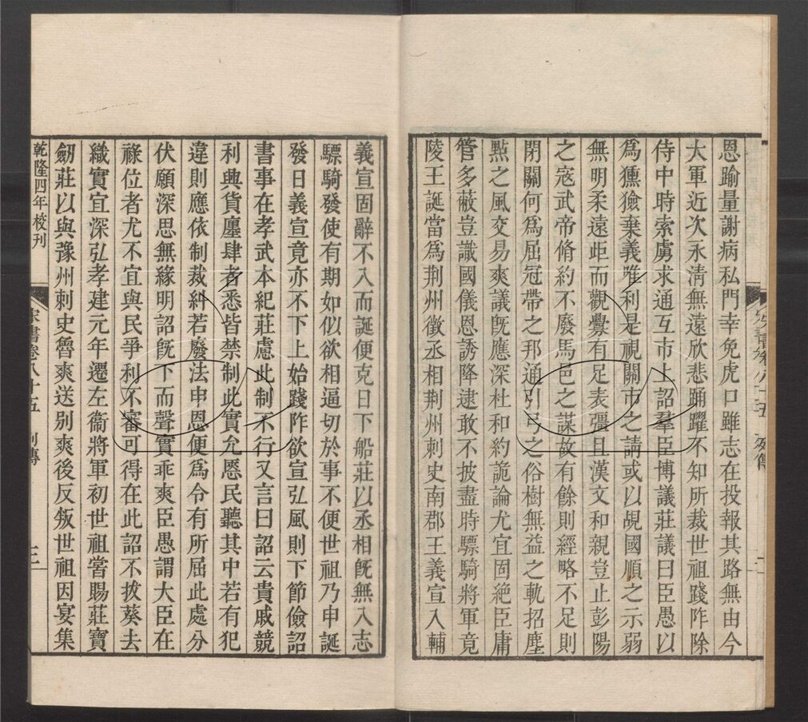 恩踰量謝病私門幸免虎口雖志在投報其路無由今
大軍近次永清無遠欣悲踊躍不知所裁世祖踐阼除
侍中時索虜求通互市上詔羣臣博議莊議曰臣愚以
為獫獫棄義唯利是視關市之請或以覘國順之示弱
無明柔遠距而觀釁有足表彊且漢文和親豈止彭陽
之宼武帝脩約不廢馬邑之謀故有餘則經略不足則
閉關何為屈冠帶之邦通引弓之俗樹無益之軌招塵
㸃之風交易爽議旣應深杜和約詭論尤宜固絕臣庸
管多蔽豈識國儀恩誘降逮敢不披盡時驃騎將軍竟
陵王誕當為荆州徵丞相荆州刺史南郡王義宣入輔
宋書卷八十五 列傳 二
義宣固辭不入而誕便克日下船莊以丞相旣無入志
驃騎發使有期如似欲相逼切於事不便世祖乃申誕
發日義宣竟亦不下上始踐阼欲宣弘風則下節儉詔
書事在孝武本紀莊慮此制不行又言曰詔云貴戚競
利興貨廛肆者悉皆禁制此實允愜民聽其中若有犯
違則應依制裁糾若廢法申恩便為令有所屈此處分
伏願深思無緣明詔旣下而聲實乖爽臣愚謂大臣在
祿位者尤不宜與民爭利不審可得在此詔不拔葵去
織實宜深弘孝建元年遷左衞將軍初世祖嘗賜莊寶
劒莊以與豫州刺史魯爽送別爽後反叛世祖因宴集
乾隆四年校刊
宋書卷八十五 列傳 三